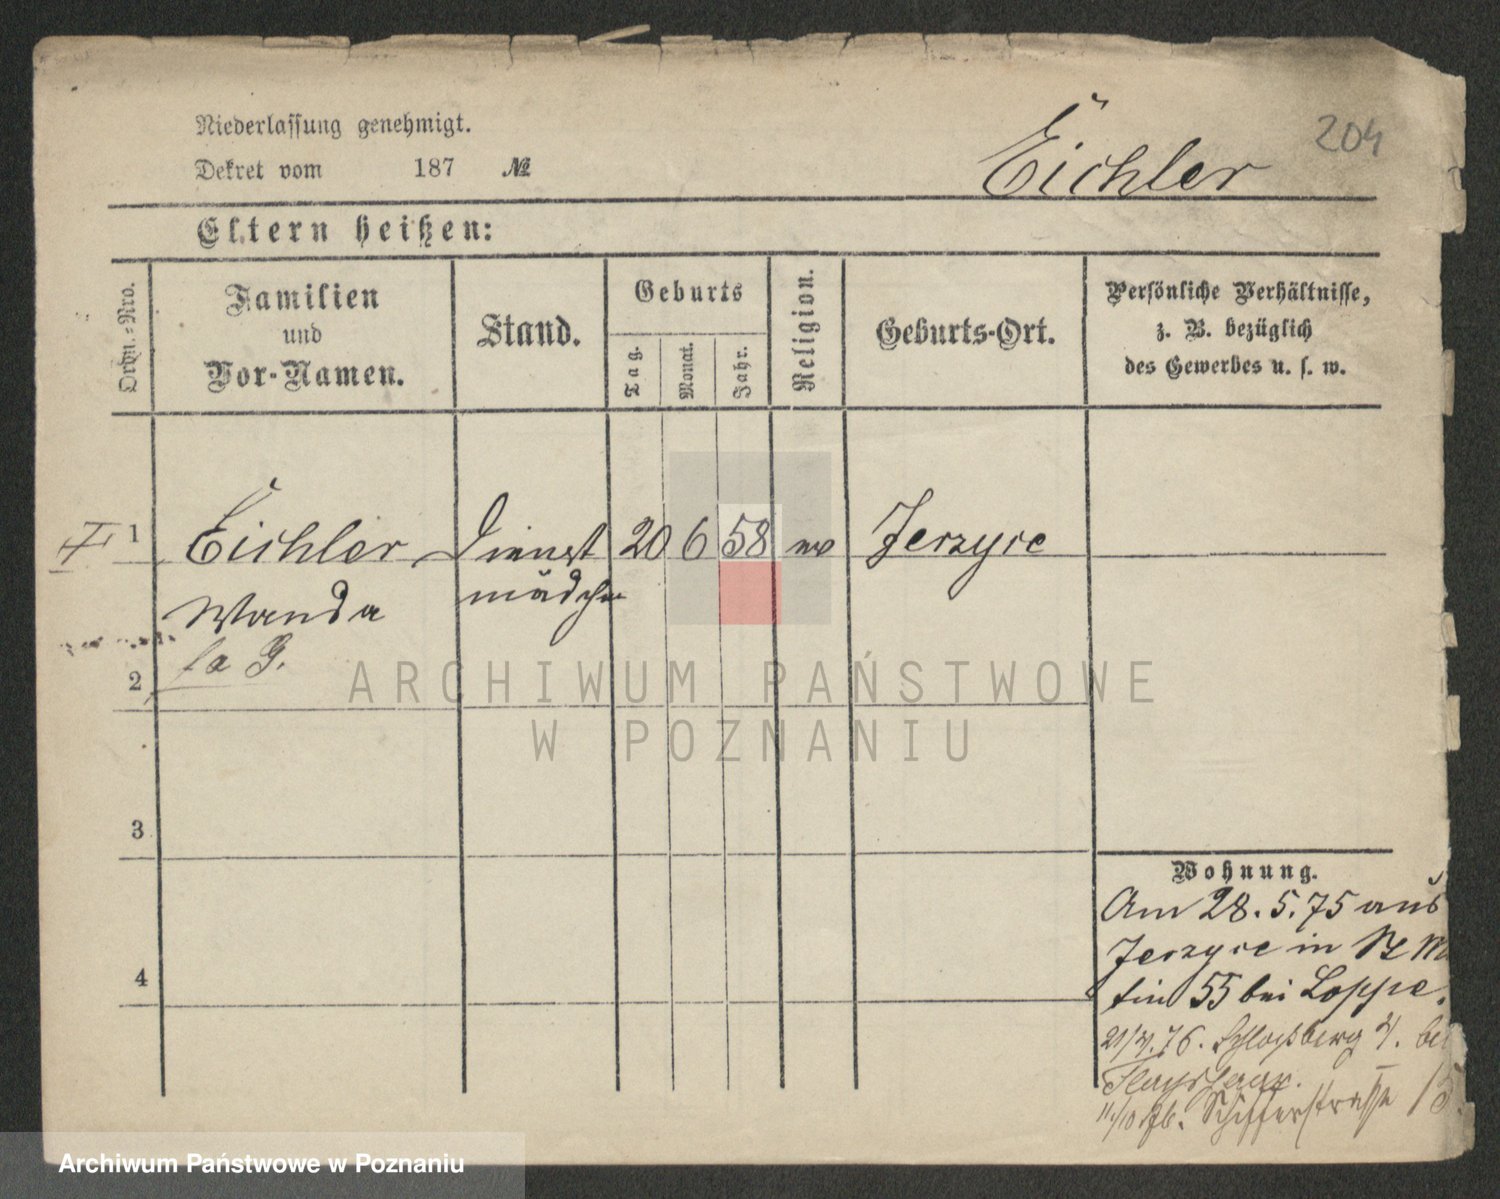 204
Niederlassung genehmigt.
Dekret vom 187 №
Eichler
Eltern heißen:
Ordn.-Nro.
Familien
und
Vor-Namen.
Stand.
Geburts
Tag.
Monat.
Jahr.
Religion.
Geburts-Ort.
Persönliche Verhältnisse,
z. B. bezüglich
des Gewerbes u. s. w.
1 Eichler Dienst 20 6 58 ev Jerzyce
Wanda mädchen
G.
2
3
4
Wohnung.
Am 28.5.75 aus
Jerzyce in St Mar
tin 55 bei Loppe.
76. Schloßberg 4. bei
Schifferstrasse 13
ARCHIWUM PAŃSTWOWE
W POZNANIU
Archiwum Państwowe w Poznaniu